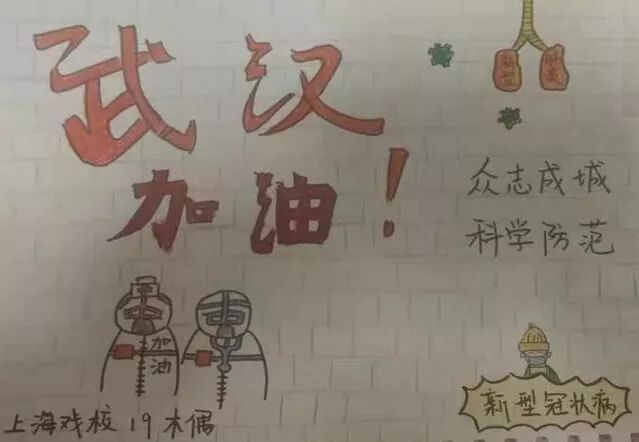 武汉
加油!
新型
肺炎
众志成城
科学防范
加油
上海戏校19木偶
新型冠状病